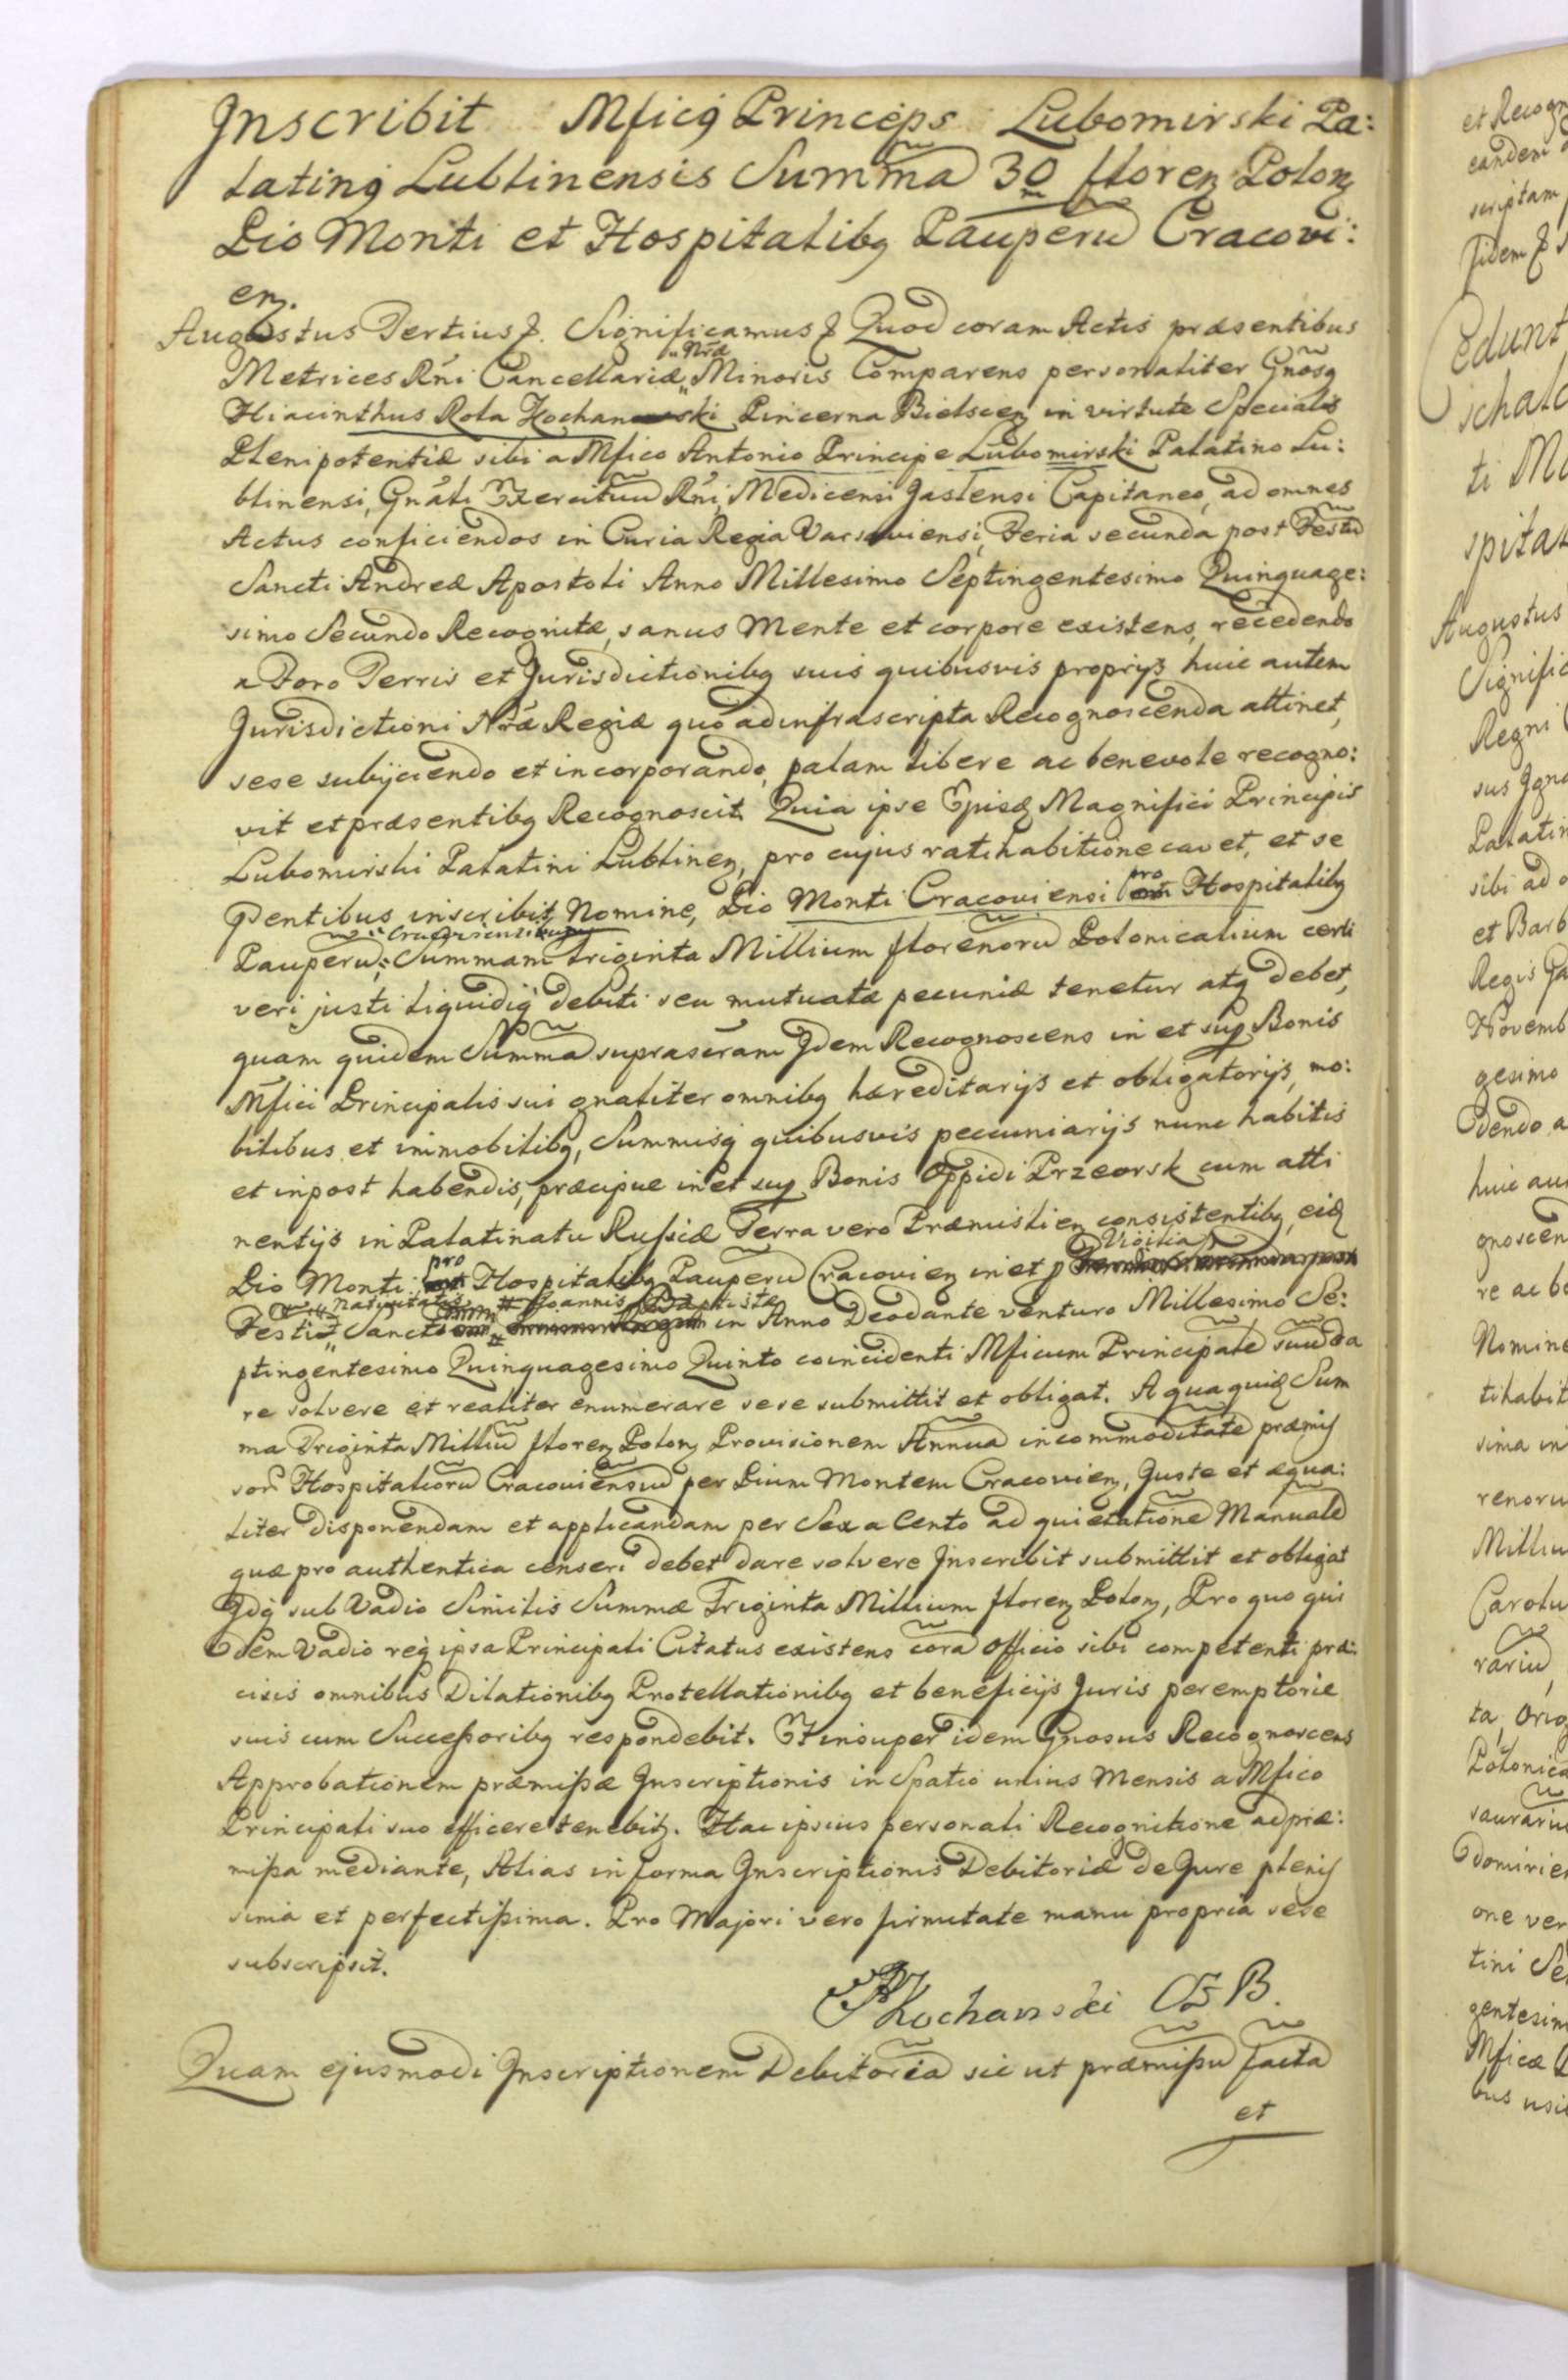 Inscribit Mficq Princeps Lubomirski Pa:
latinq Lublinensis Summa 30 floren Polon
Pio Monti et Hospitalibq Pauperu Cracovi:
en.
Augustus Tertius Significamus Quod coram Actis præsentibus
Metrices Rni Cancellariæ Nrã Minoris Comparens personaliter Gnosq
Hiacinthus Rola Kochanowski Pincerna Bielscen in virtute Specialis
Plenipotentiæ sibi a Mfico Antonio Principe Lubomirski Palatino Lu:
blinensi, Gnãli Exercituu Rni, Medicensi Jaslensi Capitaneo, ad omnes
Actus conficiendos in Curia Regia Varsaviensi, Feria secunda post Festu
Sancti Andreæ Apostoli Anno Millesimo Septingentesimo Quinquage:
simo Secundo Recognitæ, sanus Mente et corpore existens, recedendo
a Foro Terris et Jurisdictionibq suis quibusvis proprijs huic autem
Jurisdictioni Nrã Regiæ quo ad infrascripta Recognoscenda attinet,
sese subijciendo et incorporando, palam libere ac benevole recogno:
vit et præsentibq Recognoscit. Quia ipse Ejusd Magnifici Principis
Lubomirski Palatini Lublinen, pro cujus ratihabitione cavet, et se
pentibus inscribit, Nomine, Pio Monti Cracoviensi pro Hospitalibq
Pauperu, Cracoviensibus Summam triginta Millium florenoru Polonicalium certi
veri justi liquidiq debiti seu mutuatæ pecuniæ tenetur atq debet,
quam quidem Summa suprascram Idem Recognoscens in et sup Bonis
Mfici Principalis sui gnaliter omnibq hæreditarijs et obligatorijs, mo:
bilibus et immobilibq, Summisq quibusvis pecuniarijs nunc habitis
et inpost habendis, præcipue in et sup Bonis Oppidi Przeorsk cum atti
nentijs in Palatinatu Russiæ Terra vero Præmislien consistentibq, eid
Pio Monti pro Hospitalibq Pauperu Cracovien in et p Vigilia
Festi Nativitatis Sancti Joannis Baptistæ in Anno Deodante venturo Millesimo Se:
ptingentesimo Quinquagesimo Quinto coincidenti Mficum Principale suu da
re solvere et realiter enumerare sese submittit et obligat. A qua quid Sum
ma Triginta Milliu floren Polon Provisionem Annua in commoditate præmis
sor Hospitalioru Cracoviensiu per Pium Montem Cracovien, Juste et æqua:
liter disponendam et applicandam per Sex a Cento ad quietatione Manuale
quæ pro authentica censeri debet dare solvere Inscribit submittit et obligat
Idq sub Vadio Similis Summæ Triginta Millium floren Polon, Pro quo qui
dem Vadio req ipsa Principali Citatus existens cora Officio sibi competenti præ:
cisis omnibus Dilationibq Protellationibq et beneficijs Juris peremptorie
suis cum Successoribq respondebit. Et insuper idem Gnosus Recognoscens
Approbationem præmissæ Inscriptionis in Spatio unius Mensis a Mfico
Principali suo efficere tenebit. Hac ipsius personali Recognitione ad præ:
missa mediante, Alias in forma Inscriptionis Debitoriæ de Jure plenis
sima et perfectissima. Pro Majori vero firmitate manu propria sese
subscripsit.
Kochanski B.
Quam ejusmodi Inscriptionem Debitoria sic ut præmissu facta
et
et
eandem
scriptam
fidem
Cedunt
schalc
ti
spita
Augustus
Signific
Regni
sus
Palatin
sibi ad
et Barb
Regis
Novemb
gesimo
dendo a
huic au
gnoscen
re ac be
Nomine
tihabit
sima in
renoru
Milliu
Carolu
rariu
ta, Orig
Polonica
saurariu
domirie
one ver
tini Se
gentesim
Mficæ
bus usi